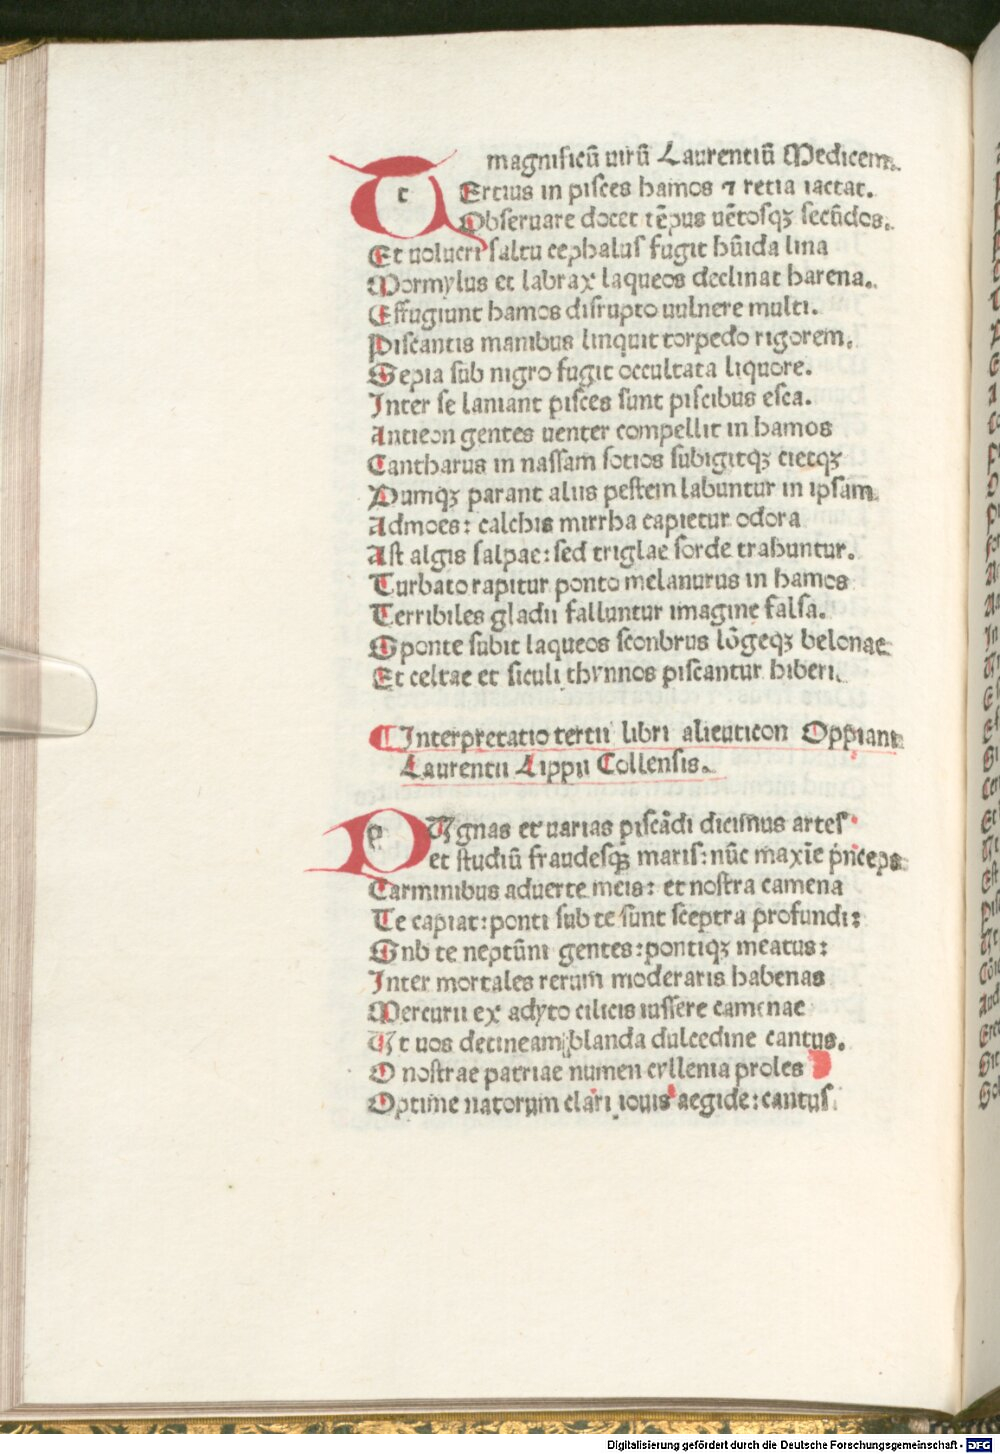 magnificū uirū Laurentiū Medicem.
t Ertius in pisces hamos ⁊ retia iactat.
Obseruare docet tēpus uētosqꝫ secūdos.
Et uolucri saltu cephalus fugit hūida lina
Mormylus et labrax laqueos declinat harena.
Effugiunt hamos disrupto uulnere multi.
Piscantis manibus linquit torpedo rigorem.
Sepia sub nigro fugit occultata liquore.
Inter se laniant pisces sunt piscibus esca.
Antieon gentes uenter compellit in hamos
Cantharus in nassam sotios subigitqꝫ cietqꝫ
Dumqꝫ parant aliis pestem labuntur in ipsam
Admoes: calchis mirrha capietur odora
Ast algis salpae: sed triglae sorde trahuntur.
Turbato rapitur ponto melanurus in hamos
Terribiles gladii falluntur imagine falsa.
Sponte subit laqueos sconbrus lōgeqꝫ belonae
Et celtae et siculi thynnos piscantur hiberi.
¶ Interpretatio tertii libri alieuticon Oppiani
Laurentii Lippii Collensis.
p Vgnas et uarias piscādi dicimus artes
et studiū fraudesqꝫ maris: nūc maxīe prīceps
Carminibus aduerte meis: et nostra camena
Te capiat: ponti sub te sunt sceptra profundi:
Snb te neptūni gentes: pontiqꝫ meatus:
Inter mortales rerum moderaris habenas
Mercurii ex adyto cilicis iussere camenae
Vt uos detineam blanda dulcedine cantus.
O nostrae patriae numen cyllenia proles
Optime natorum clari iouis aegide: cantus
Digitalisierung gefördert durch die Deutsche Forschungsgemeinschaft - DFG